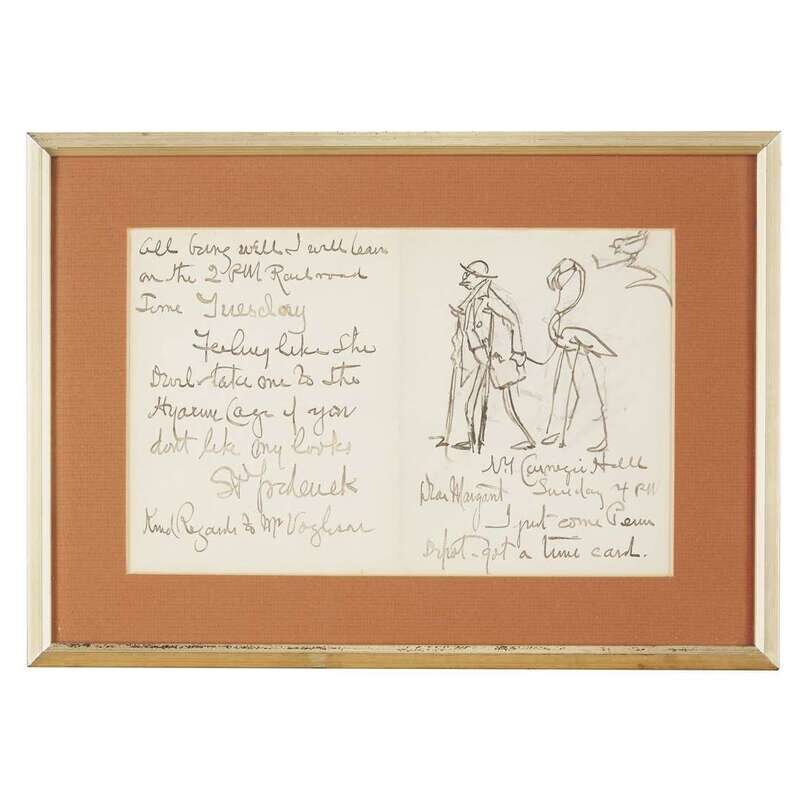 all being well I will leave
on the 2 PM Railroad
Time Tuesday
Feeling like the
Devil - take one to the
Cage if you
dont like my looks
Kind Regards to Mr
NY Carnegie Hall
Dear Margaret Sunday 4 PM
I just come Penn
Depot - got a time card.